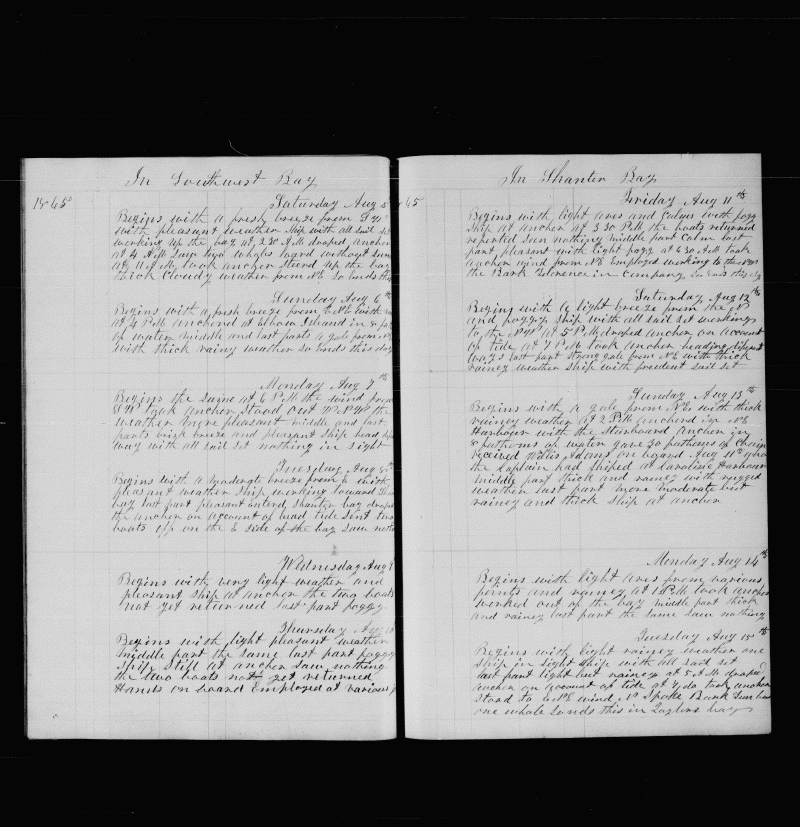 In Southwest Bay
1865
Saturday Aug 5
Begins with a fresh breeze from
with pleasant weather Ship with all sail
working up the bay at 2 30 A.M droped anchor
at 4 A.M Saw two whales lowered without
at 11 A.M. took anchor steerd up the bay
thick cloudy weather from NE So Ends this
Sunday Aug 6th
Begins with a fresh breeze from ENE with
at 4 P.M anchored at Elbow Island in 8
of water middle and last parts a gale from N
with thick rainy weather So Ends this day
Monday Aug 7th
Begins the same at 6 P.M the wind from
took anchor stood out W.N.W the
weather more pleasant middle and last
parts brisk breeze and pleasant ship head
way with all sail set nothing in sight
Tuesday Aug 8th
Begins with a moderate breeze from E with
pleasant weather ship working toward
bay last part pleasant Enterd Shanter bay
the anchor on account of head tide Sent two
boats off on the E side of the bay Saw
Wednesday Aug 9
Begins with very light weather and
pleasant ship at anchor the two boats
not yet returned last part foggy
Thursday Aug 10
Begins with light pleasant weather
middle part the same last part foggy
Ship still at anchor Saw nothing
the two boats not yet returned
Hands on board Employed at various
In Shanter Bay
65
Friday Aug 11th
Begins with light ares and Calms with
Ship at anchor at 3 30 P.M the boats returned
reported Seen nothing middle part Calm last
part pleasant with light fogg at 6 30 A.M took
anchor wind from NE Employed working to the
the Bark in Company So Ends this day
Saturday Aug 12th
Begins with a light breeze from the N
and foggy Ship with all sail set working
to the NW at 5 P.M droped anchor on account
of tide at 7 P.M. took anchor heading different
ways last part Strong gale from NE with thick
rainey weather ship with prudent sail set
Sunday Aug 13th
Begins with a gale from NE with thick
rainey weather at 2 P.M anchord in NE
Harbour with the Starboard anchor in
8 fathoms of water gave 30 fathoms of Chain
Received Adams on board Aug 11th
the Captain had shiped at Harbour
middle part thick and rainey with rugged
weather last part more moderate but
rainey and thick Ship at anchor
Monday Aug 14th
Begins with light ares from various
points and rainey at 1 P.M took anchor
worked out of the bay middle part thick
and rainey last part the same Saw nothing
Tuesday Aug 15th
Begins with light rainey weather one
Ship in Sight Ship with all sail set
last part light but rainey at 5 A.M droped
anchor on account of tide at 7 do took anchor
stood to wind Spoke Bark
one whale So Ends this in bay